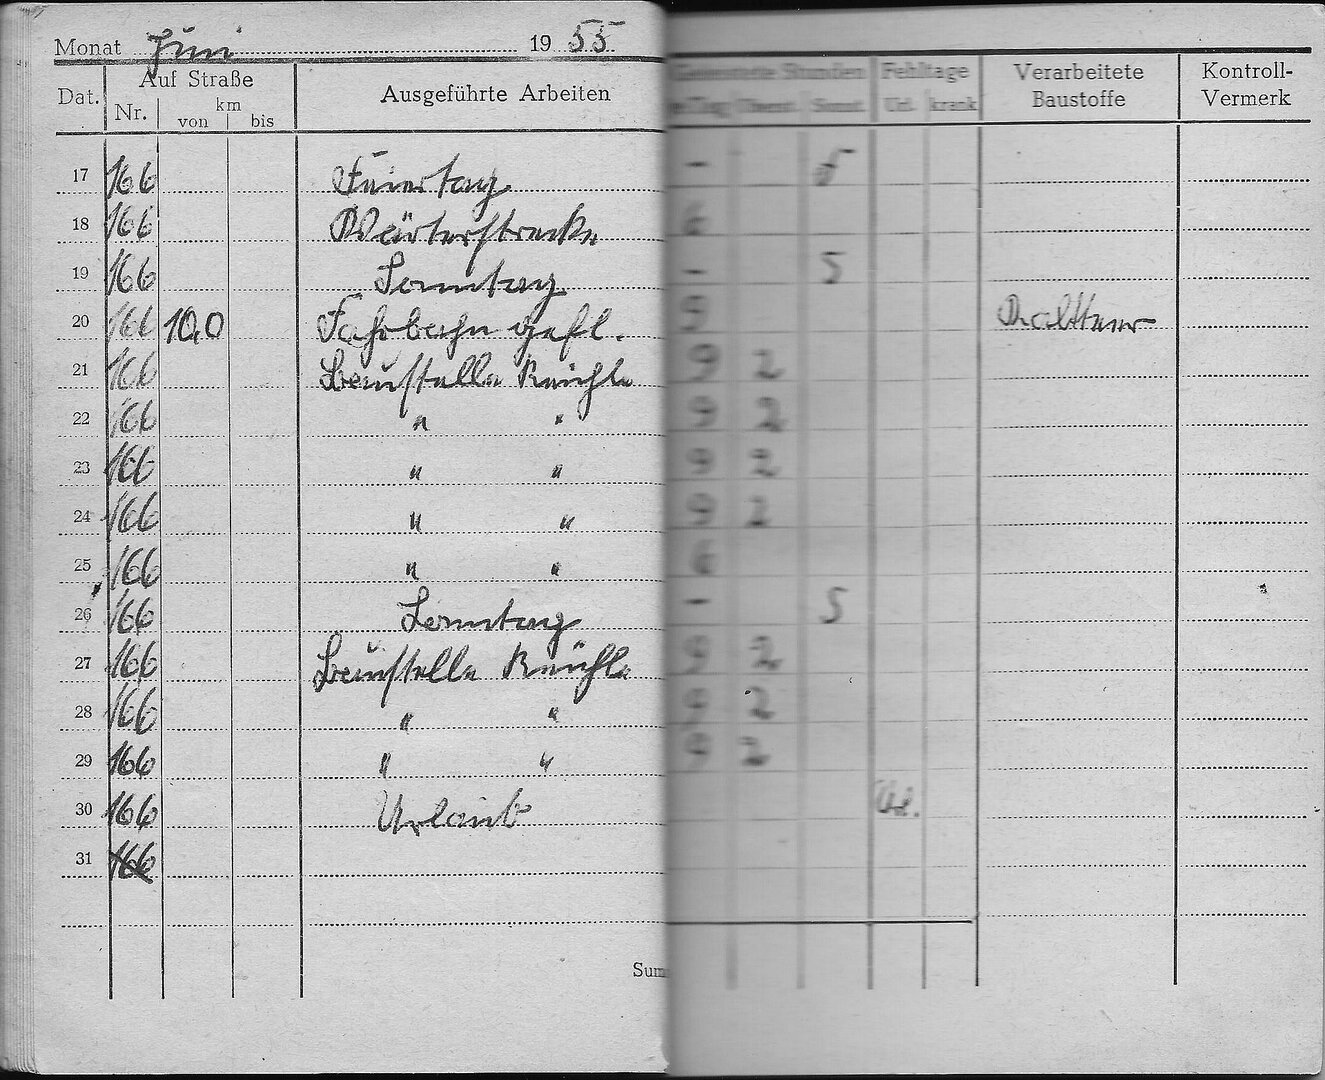 Monat Juni 1955
Dat. Auf Straße Ausgeführte Arbeiten Geleistete Stunden Fehltage Verarbeitete Baustoffe Kontroll-Vermerk
Nr. km von bis Überst. Sonnt. Url. krank
17 166 Feiertag - 5
18 166 Wärterstrecke 6
19 166 Sonntag - 5
20 166 10,0 Fahrbahn gefl. 9 Kaltteer
21 166 Baustelle 9 2
22 166 " " 9 2
23 166 " " 9 2
24 166 " " 9 2
25 166 " " 6
26 166 Sonntag - 5
27 166 Baustelle 9 2
28 166 " " 9 2
29 166 " " 9 2
30 166 Urlaub Url.
31 166
Sum